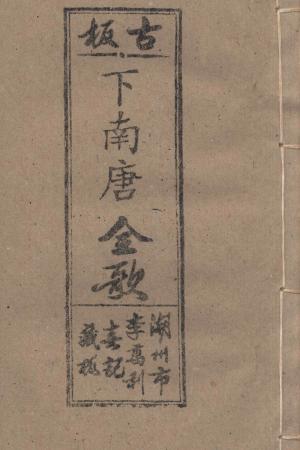 古板
下南唐全歌
潮州市
李萬利
春記
藏板